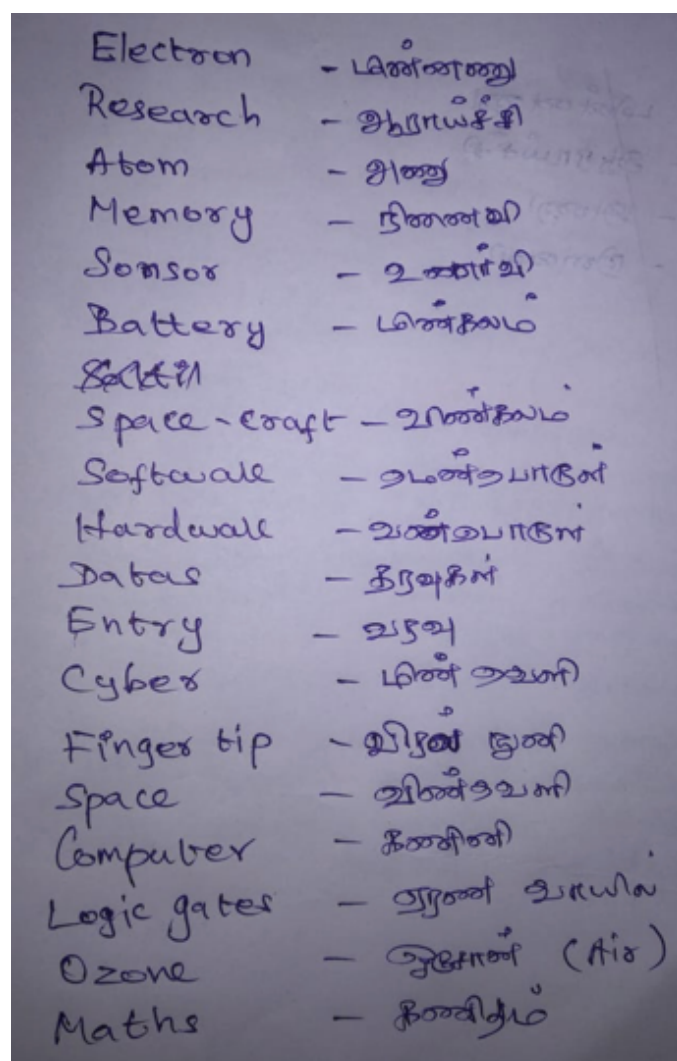 Electron - மின்னணு
Research - ஆராய்ச்சி
Atom - அணு
Memory - நினைவி
Sonsor - உணர்வி
Battery - மின்கலம்
Space-craft - விண்கலம்
Software - மென்பொருள்
Hardware - வன்பொருள்
Datas - தரவுகள்
Entry - வரவு
Cyber - மின் வெளி
Finger tip - விரல் நுனி
Space - விண்வெளி
Computer - கணினி
Logic gates - ஏரண வாயில்
Ozone - ஓசோன் (Air)
Maths - கணிதம்